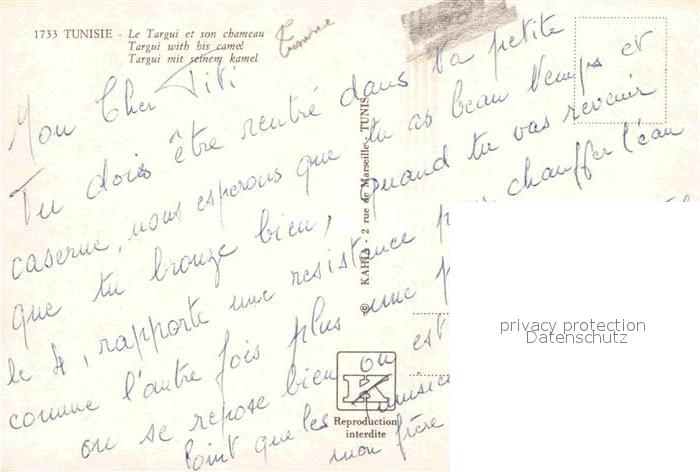 1733 TUNISIE - Le Targui et son chameau
Targui with his camel
Targui mit seinem kamel
Mon Cher Titi
Tu dois être rentré dans ta petite
caserne, nous esperons que tu as beau temps et
que tu bronze bien, Quand tu vas revenir
le 4, rapporte une resistance pour chauffer l'eau
comme l'autre fois plus une
on se repose bien on est
point que les
mon frère
© KAHIA - 2 rue de Marseille, TUNIS
K
Reproduction
interdite
privacy protection
Datenschutz